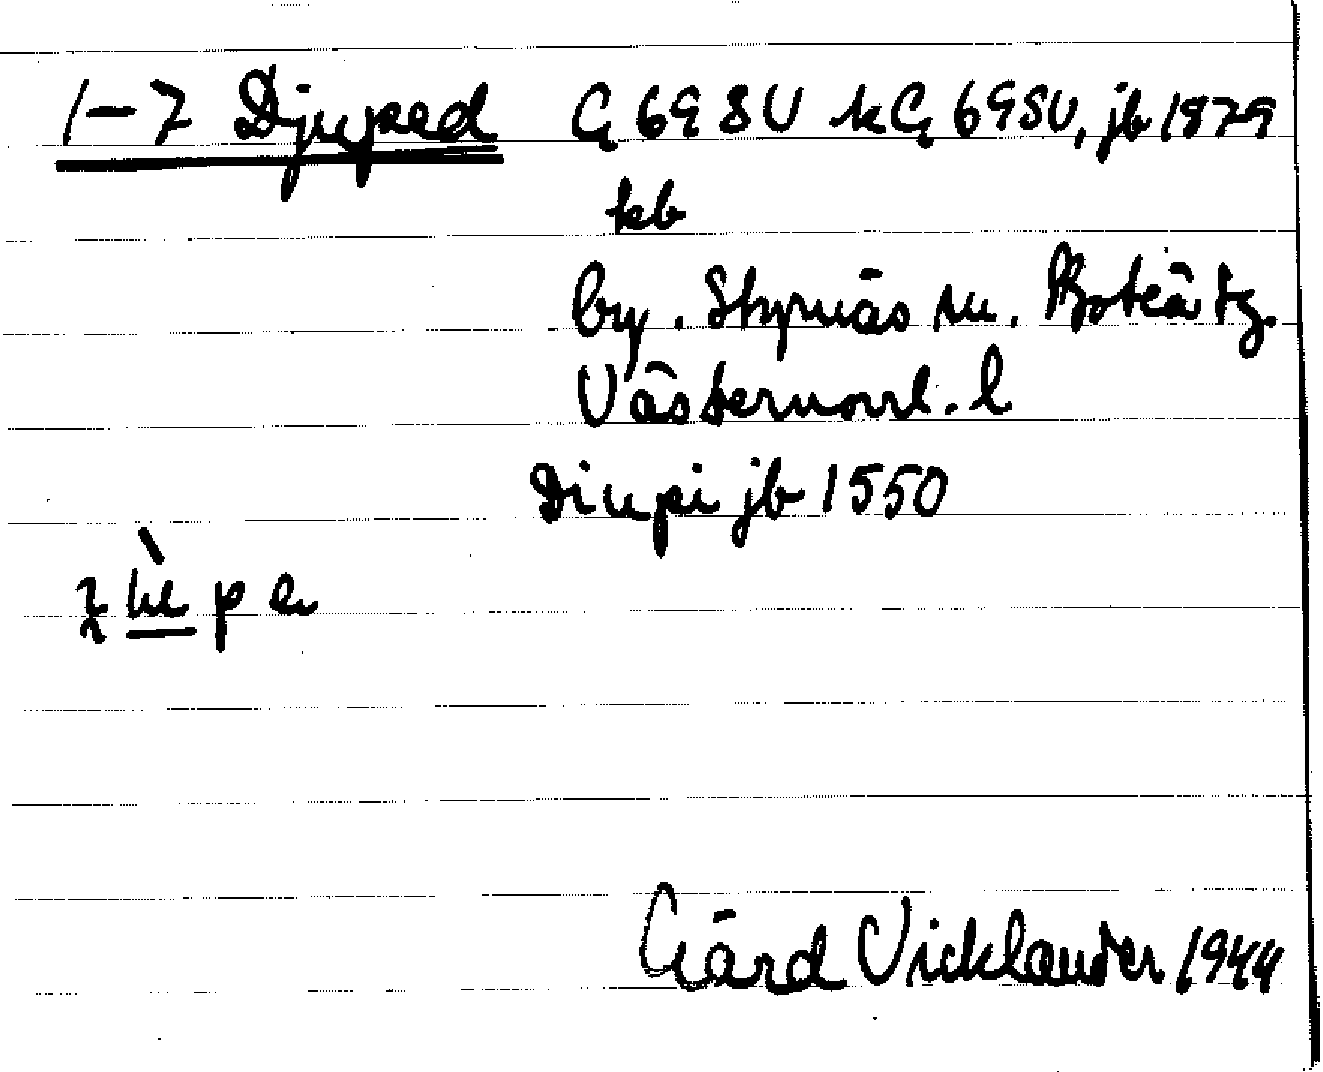 1–7 Djuped G 69 SU kG 69SU, jb 1879
kb
by. Styrnäs sn. Boteå tg.
Västernorrl. l
Diupi jb 1550
Gärd Vicklander 1944